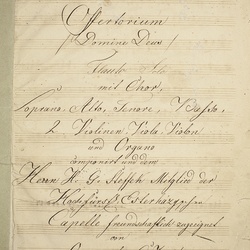 Offertorium
(Domine Deus)
Flauto Solo
mit Chor,
Soprano, Alto, Tenore, Basso,
2 Violinen, Viola, Violon
und Organo
componirt und dem
Herrn W. G. Mitglied der
Hochfürstl. Esterhazyschen
Capelle freundschaftlich zugeeignet
von